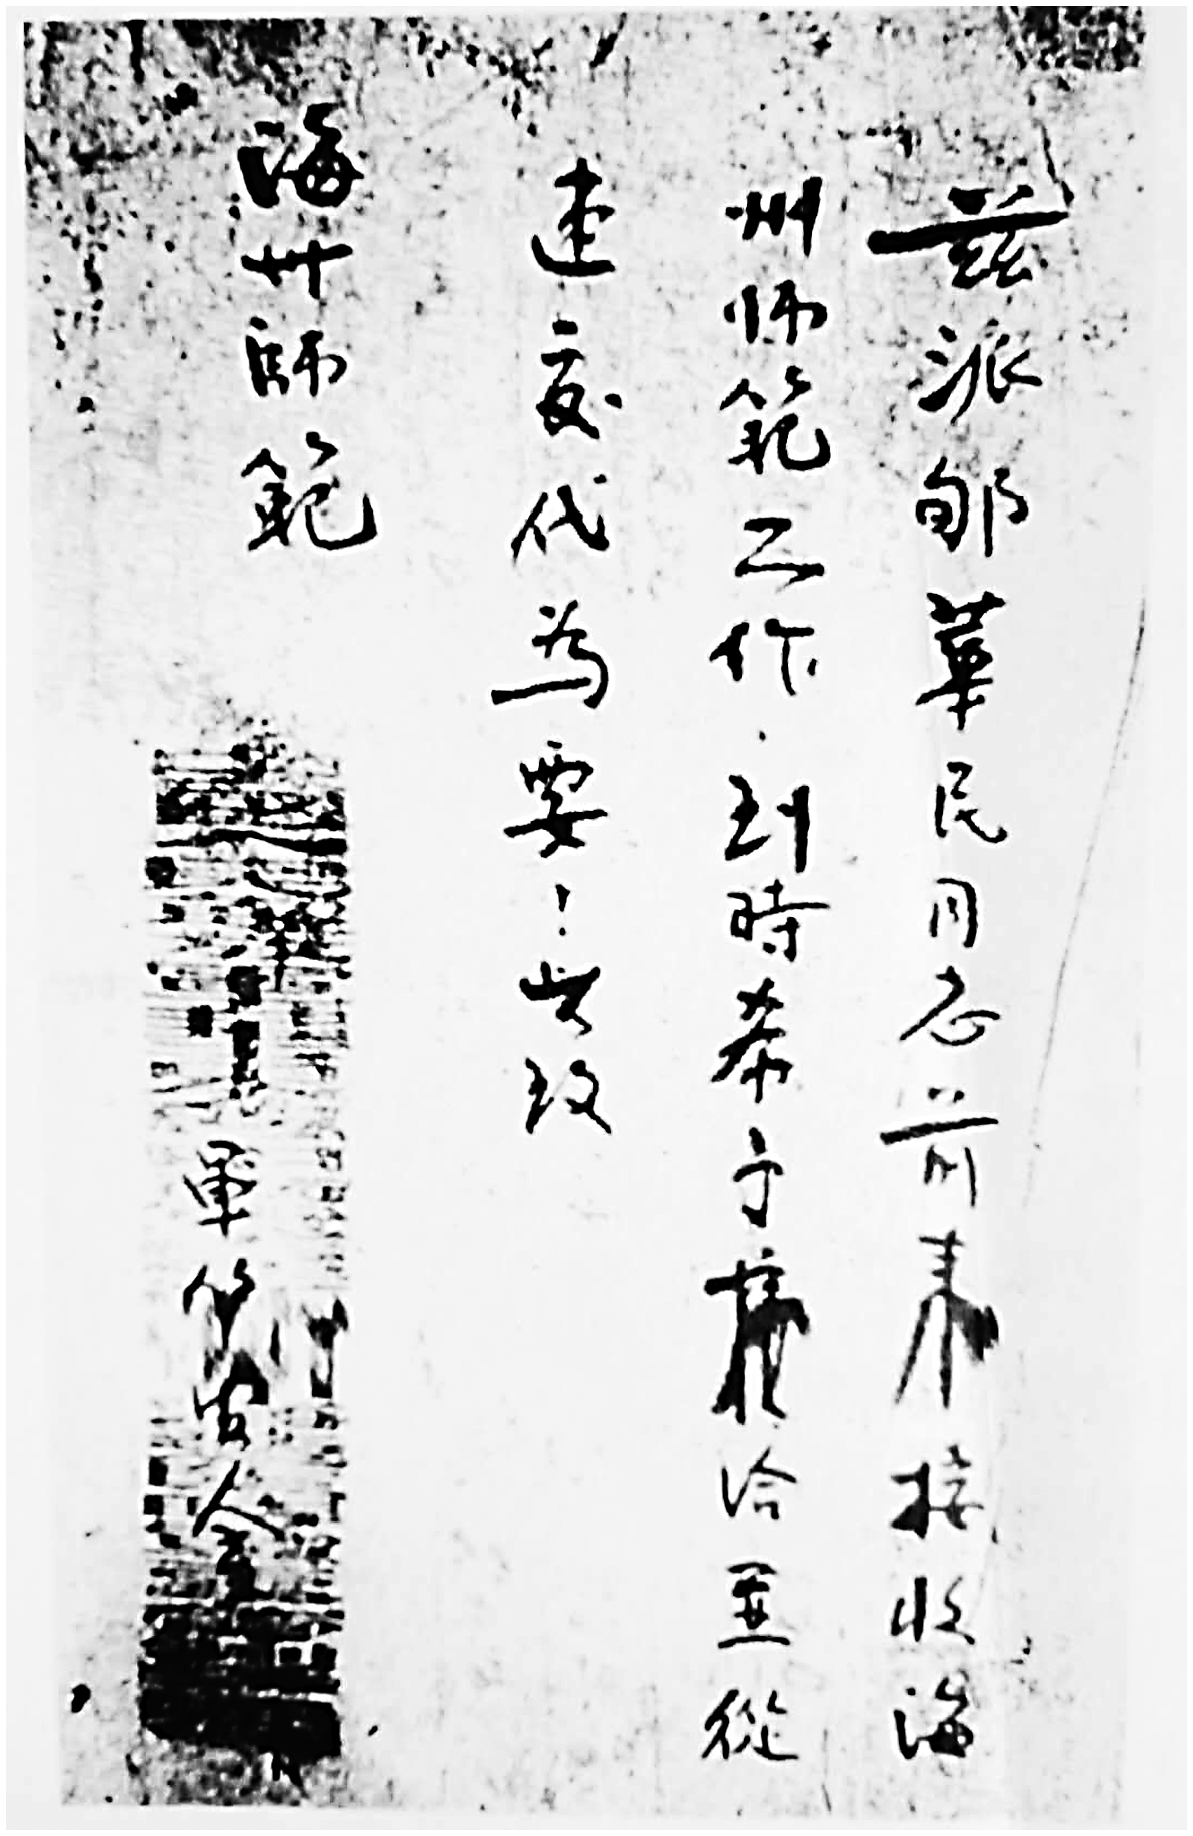 兹派郇華民同志前来接收海
州师範工作．到時希予接洽並從
速交代為要！此致
海州師範
軍管會